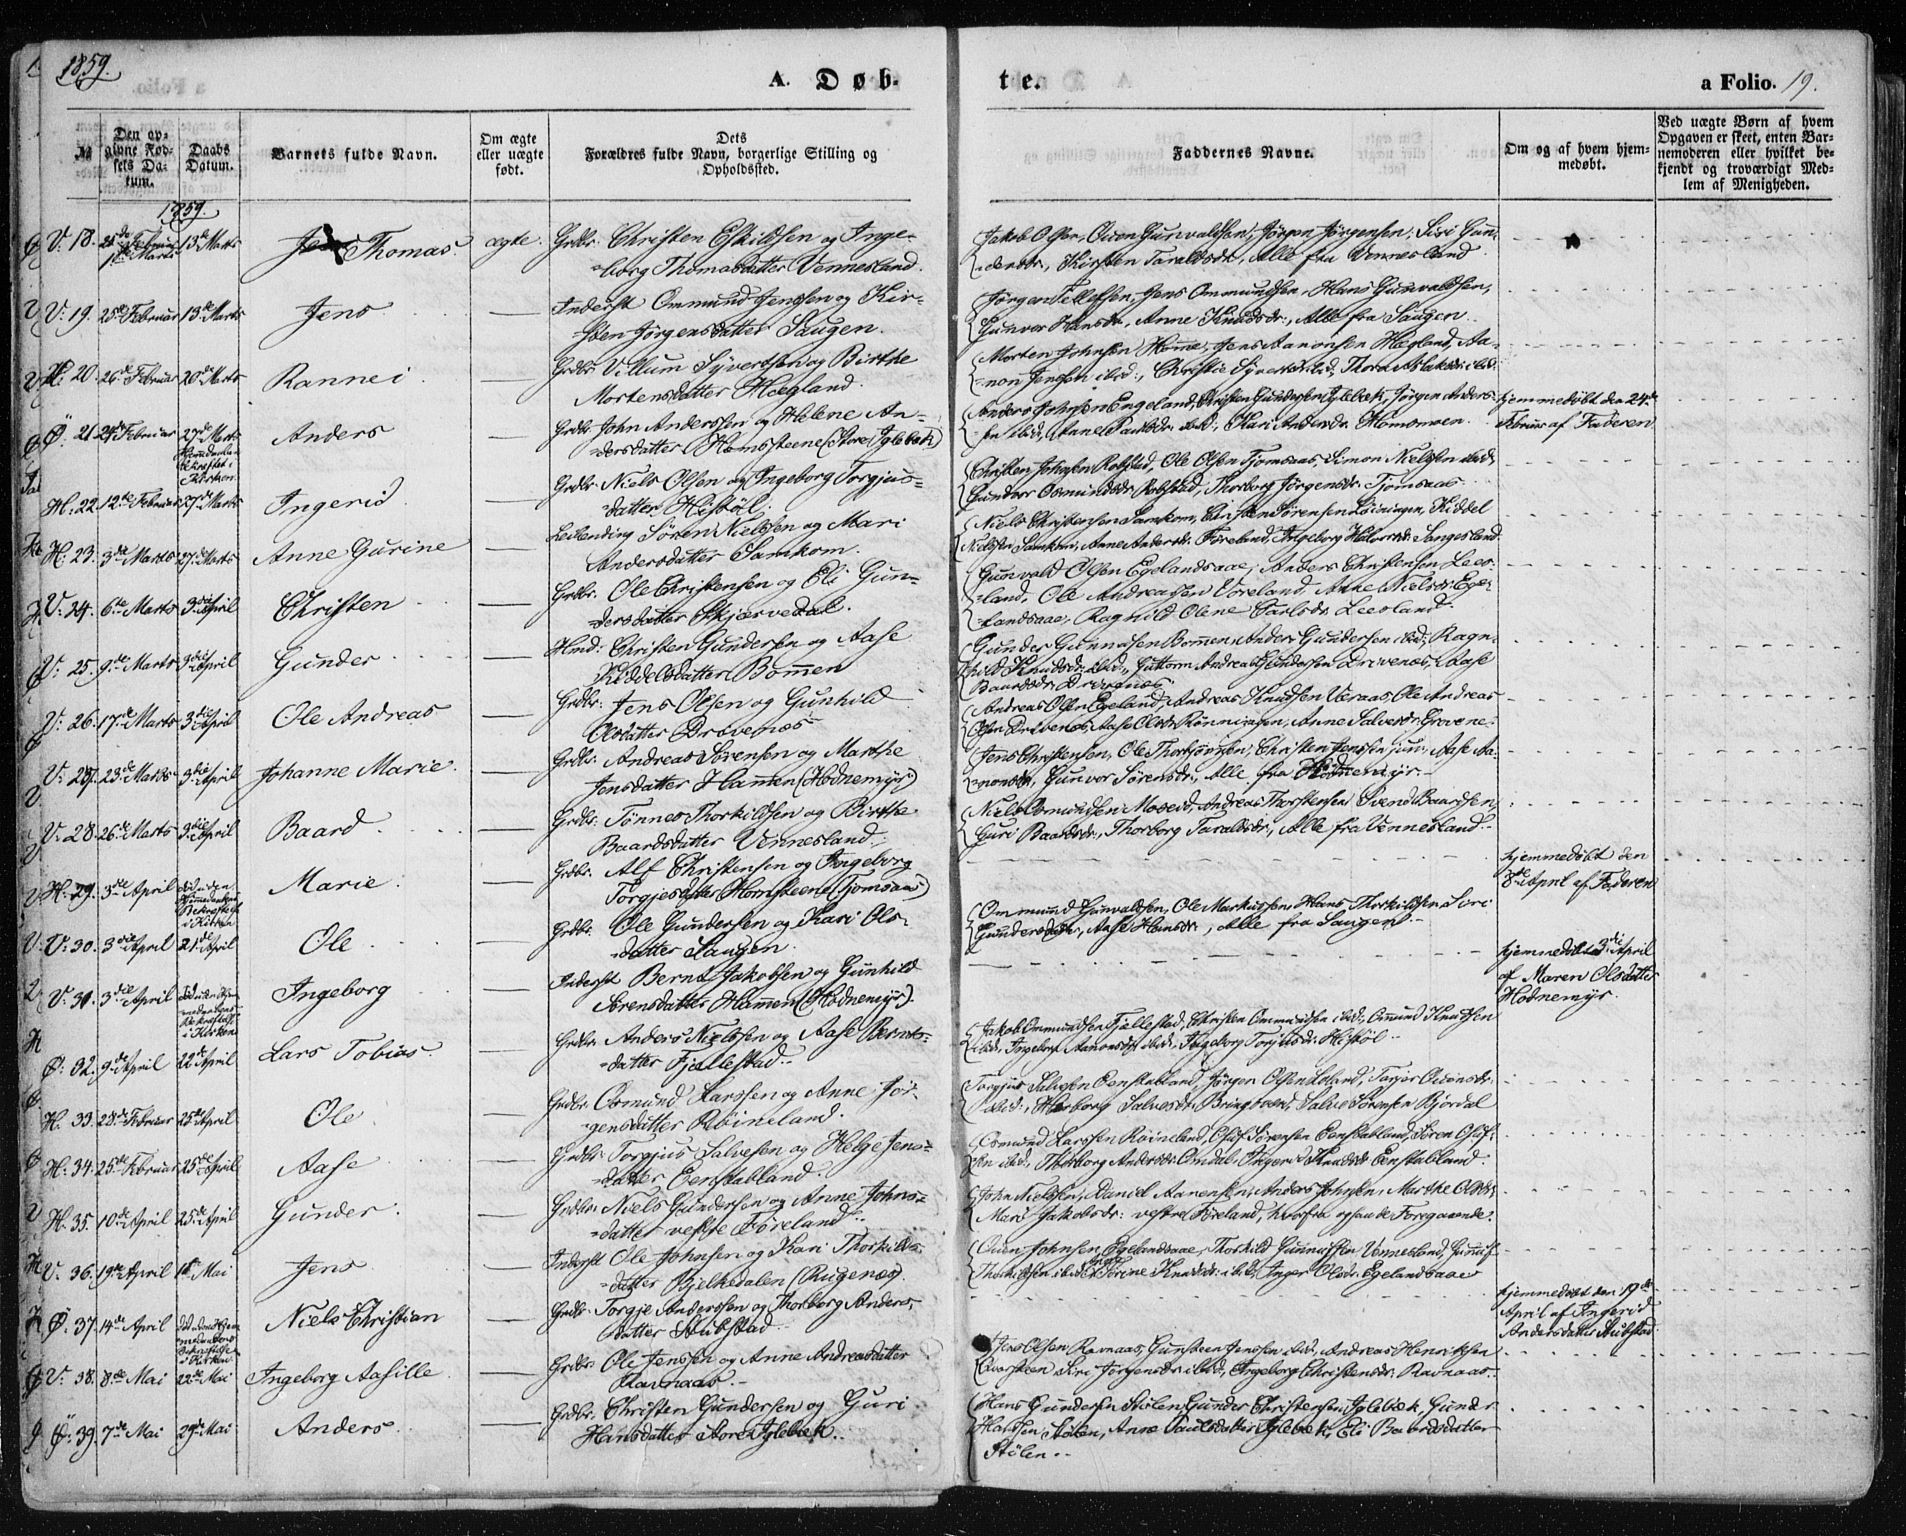 1859.
A. Døb-
te.
a Folio. 19.
№
Den opgivne Fødsels Datum.
Daabs Datum.
Barnets fulde Navn.
Om ægte eller uægte født.
Dets Forældres fulde Navn, borgerlige Stilling og Opholdssted.
Faddernes Navne.
Om og af hvem hjemmedøbt.
Ved uægte Børn af hvem Opgaven er skeet, enten Barnemoderen eller hvilket bekjendt og troværdigt Medlem af Menigheden.
1859.
V: 18. 13de Marts Thomas. ægte. Grdbr. Christen Eskildsen og Inge-
borg Thomasdatter Vennesland.
Jakob Olsen, Oven Gunvaldsen, Jörgen Jörgensen, Siri Gun-
dersdr., Kirsten Taraldsdr., Alle fra Vennesland
V: 19. 25de Februar 13de Marts Jens Inderst Ommund Jenssen og Kir-
sten Jörgensdatter Saugen.
Jörgen Tellefsen, Jens Ommundsen, Hans Gunvaldsen,
Gunvor Hansdr., Anne Knudsdr., Alle fra Saugen
20. 26de Februar 20de Marts Rannei Grdbr. Villum Syvertsen og Birthe
Mortensdatter Hægland.
Morten Johnsen Homme, Jens Aanonsen Hægland, Aa-
non Jenssen ibid:, Christie Syvertsdr. ibid:, Thora Aslaksdr. ibid:
Ø. 21. 24de Februar 27de Marts Anders Grdbr. John Anderssen og Helene An-
dersdatter Homsteene (Store Iglebæk)
Anders Johnsen Engeland, Christen Gundersen Iglebæk, Jörgen Anders-
sen ibid:, Anne Paulsdr. ibid:, Kari Andersdr. Homomoen.
hjemmedøbt den 24de
Februar af Faderen
H. 22. 12te Februar 27de Marts Ingerid Grdbr. Niels Olsen og Ingeborg Torgjus-
datter Histöl.
Christen Johnsen Robstad, Ole Olsen Tjomsaas, Simon Nielssen ibid:
Gundvor Osmundsdr. Robstad, Thorborg Jörgensdr. Tjomsaas
H. 23. 3de Marts 27de Marts Anne Gurine Leilending Sören Nielssen og Mari
Andersdatter Samkom.
Niels Christensen Samkom, Christen Sörensen Löiningen, Kiddel
Nielssen Samkom, Anne Andersdr. Föreland, Ingeborg Halvorsdr. Sangesland
V: 24. 6te Marts 3die April Christen Grdbr. Ole Christensen og Eli Gun-
dersdatter Skjærvedal.
Gunvald Olsen Egelandsaae, Anders Christensen Lees-
land, Ole Andreassen Voreland, Anne Nielsdr. Ege-
landsaae, Ragnild Olene Carlsdr. Leesland.
V: 25. 9de Marts 3die April Gunder Hmd: Christen Gundersen og Aase
Kiddelsdatter Bommen
Gunder Gunnufsen Bommen, Anders Gundersen ibid:, Ragn-
hild Knudsdr. ibid:, Guttorm Andreas Gundersen Drivenes, Aase
Baardsdr. Drivenes.
V: 26. 17de Marts 3die April Ole Andreas Grdbr. Jens Olsen og Gunhild
Olsdatter Drivenes
Andreas Olsen Egeland, Andreas Knudsen Veraas, Ole Andreas
Olsen Drivenes, Aase Olsdr. Rönningen, Anne Salvesdr. Grovene
V: 27. 23de Marts 3die April Johanne Marie. Grdbr. Andreas Sörensen og Marthe
Jensdatter Hammen (Hodnemyr)
Jens Christensen, Ole Thorbjörnsen, Christen Jenssen, Aase Aa-
nonsdr., Gunvor Sörensdr., Alle fra Hodnemyr.
V: 28. 26de Marts 3die April Baard. Grdbr. Tönnes Thorkildsen og Birthe
Baardsdatter Vennesland.
Niels Osmundsen Moseid, Andreas Thorstensen, Svend Baardsen,
Guri Baardsdr., Thorborg Taraldsdr., Alle fra Vennesland
H. 29. 3die April Marie. Grdbr. Alf Christensen og Ingeborg
Torgjesdatter Homsteene (Tjomsaas)
hjemmedøbt den
8de April af Faderen
V: 30. 3die April 21de April Ole Grdbr. Ole Gundersen og Kari Ols-
datter Saugen.
Ommund Gunvaldsen, Ole Markussen, Hans Thorkildsen, Siri
Gundersdatter, Aase Hansdr., Alle fra Saugen.
V: 31. 3die April Ingeborg Inderst Bernt Jakobsen og Gunhild
Sörensdatter Hammen (Hodnemyr).
hjemmedøbt 3die April
af Maren Olsdatter
Hodnemyr.
Ø: 32. 9de April 22de April Lars Tobias. Grdbr. Anders Nielssen og Aase Bernts-
datter Fjellestad.
Jakob Ommundsen Fjellestad, Christen Ommundsen ibid:, Ommund Knudsen
ibid:, Ingeborg Aanonsdr. ibid:, Ingeborg Torjusdr. Histöl
H. 33. 28de Februar 25de April Ole Grdbr. Osmund Larssen og Anne Jör-
gensdatter Röineland.
Torgjus Salvesen Eenstabland, Jörgen Olsen Loland,
Salve Sörensen Bjordal
H: 34. 25de Februar 25de April Aase Grdbr. Torgjus Salvesen og Helge Jens-
datter Eenstabland.
Osmund Larssen Röineland, Olaf Sörensen Eenstabland, Sören Olaf-
sen ibid:, Thorborg Andersdr. Omdal, Ingerid Knudsdr. Eenstabland.
H. 35. 10de April 25de April Gunder. Grdbr. Niels Gundersen og Anne Johns-
datter vestre Föreland.
John Nielssen, Daniel Aanensen, Anders Johnsen, Marthe Olsdr.
Mari Jakobsdr: vestre Föreland, hvorfra ogsaa de Foregaaende.
V: 36. 19de April 1ste Mai Jens Inderst Ole Johnsen og Kari Thorkilds-
datter Bjelkedalen (Rugenæs)
Oven Johnsen Egelandsaae, Thorkild Gunnufsen Vennesland, Gunuf
Thorkildsen ibid:, Torine Knudsdr. ibid:, Inger Olsdr. Egelandsaae
Ø: 37. 14de April Niels Christian Grdbr. Torgje Anderssen og Thorborg Anders-
datter Stubstad
hjemmedøbt den 19de
April af Ingerid
Andersdatter Stubstad.
V: 38. 8de Mai 22de Mai Ingeborg Aasille. Grdbr. Ole Jenssen og Anne Andreasdatter
Ravnaas.
Jens Olsen Ravnaas, Gunsteen Jenssen ibid:, Andreas Henriksen
Kvarsteen, Siri Jörgensdr. ibid:, Ingeborg Christensdr. Ravnaas.
Ø: 39. 7de Mai 29de Mai Anders. Grdbr. Christen Gundersen og Guri
Hansdatter Store Iglebæk.
Hans Gundersen Stölen, Gunder Christensen Iglebæk, Gunder
Hanssen Stölen, Anne Paulsdatter Iglebæk, Eli Baardsdatter
Stölen.